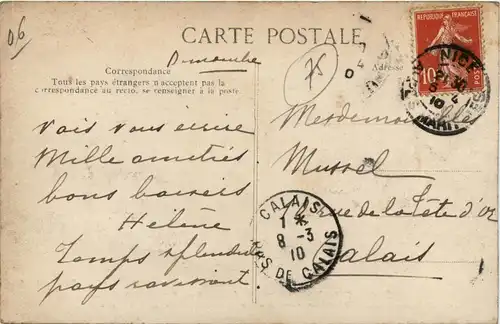 06
CARTE POSTALE
Dimanche
75
Correspondance
Adresse
Tous les pays étrangers n'acceptent pas la
correspondance au recto, se renseigner à la poste
Vais vous écrire
Mille amitiés
bons baisers
Hélène
Temps splendide
pays ravissant
Mesdemoiselles
Mussel
rue de la Tête d'or
Calais
REPUBLIQUE FRANÇAISE
10
POSTES
NICE
10
MARIT
CALAIS
1 *
8 -3
10
PAS DE CALAIS